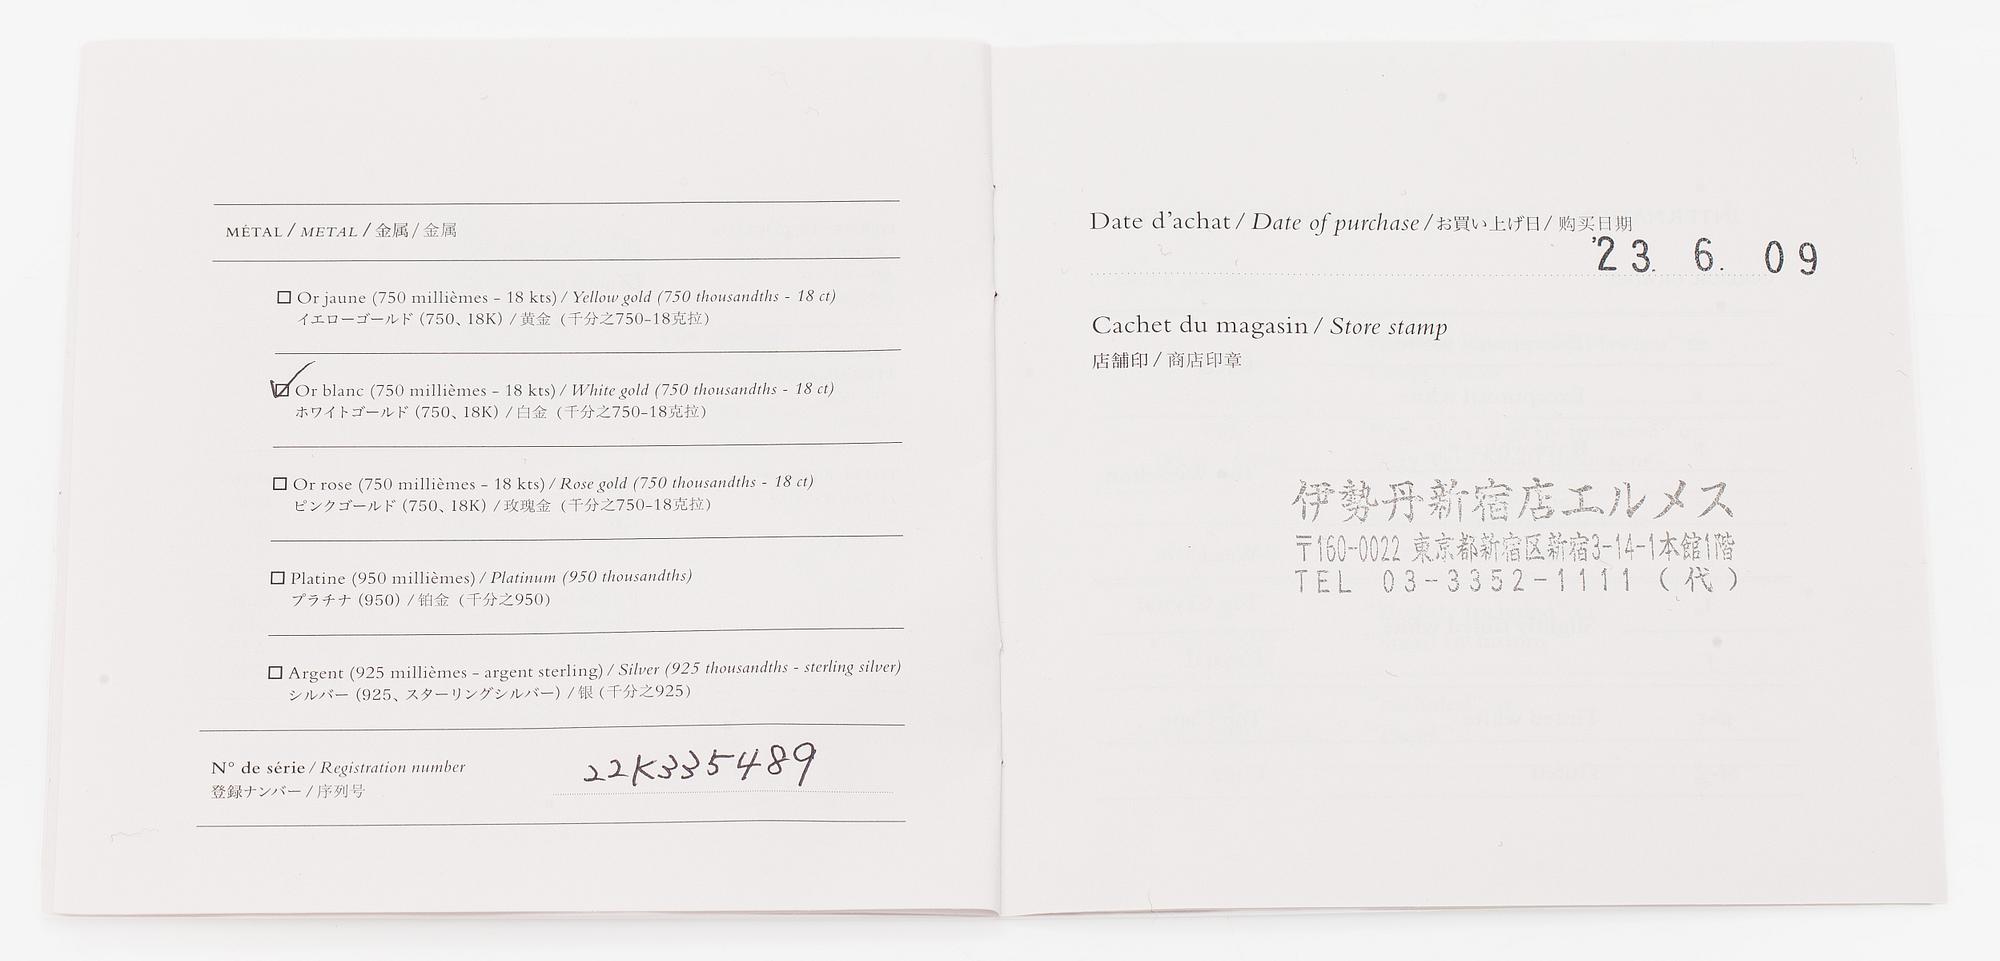 MÉTAL / METAL / 金属 / 金属
Or jaune (750 millièmes - 18 kts) / Yellow gold (750 thousandths - 18 ct)
イエローゴールド (750、18K) / 黄金 (千分之750-18克拉)
Or blanc (750 millièmes - 18 kts) / White gold (750 thousandths - 18 ct)
ホワイトゴールド (750、18K) / 白金 (千分之750-18克拉)
Or rose (750 millièmes - 18 kts) / Rose gold (750 thousandths - 18 ct)
ピンクゴールド (750、18K) / 玫瑰金 (千分之750-18克拉)
Platine (950 millièmes) / Platinum (950 thousandths)
プラチナ (950) / 铂金 (千分之950)
Argent (925 millièmes - argent sterling) / Silver (925 thousandths - sterling silver)
シルバー (925、スターリングシルバー) / 银 (千分之925)
N° de série / Registration number
22K335489
登録ナンバー / 序列号
Date d'achat / Date of purchase / お買い上げ日 / 购买日期
'23. 6. 09
Cachet du magasin / Store stamp
店舗印 / 商店印章
伊勢丹新宿店エルメス
〒160-0022 東京都新宿区新宿3-14-1本館1階
TEL 03-3352-1111 (代)